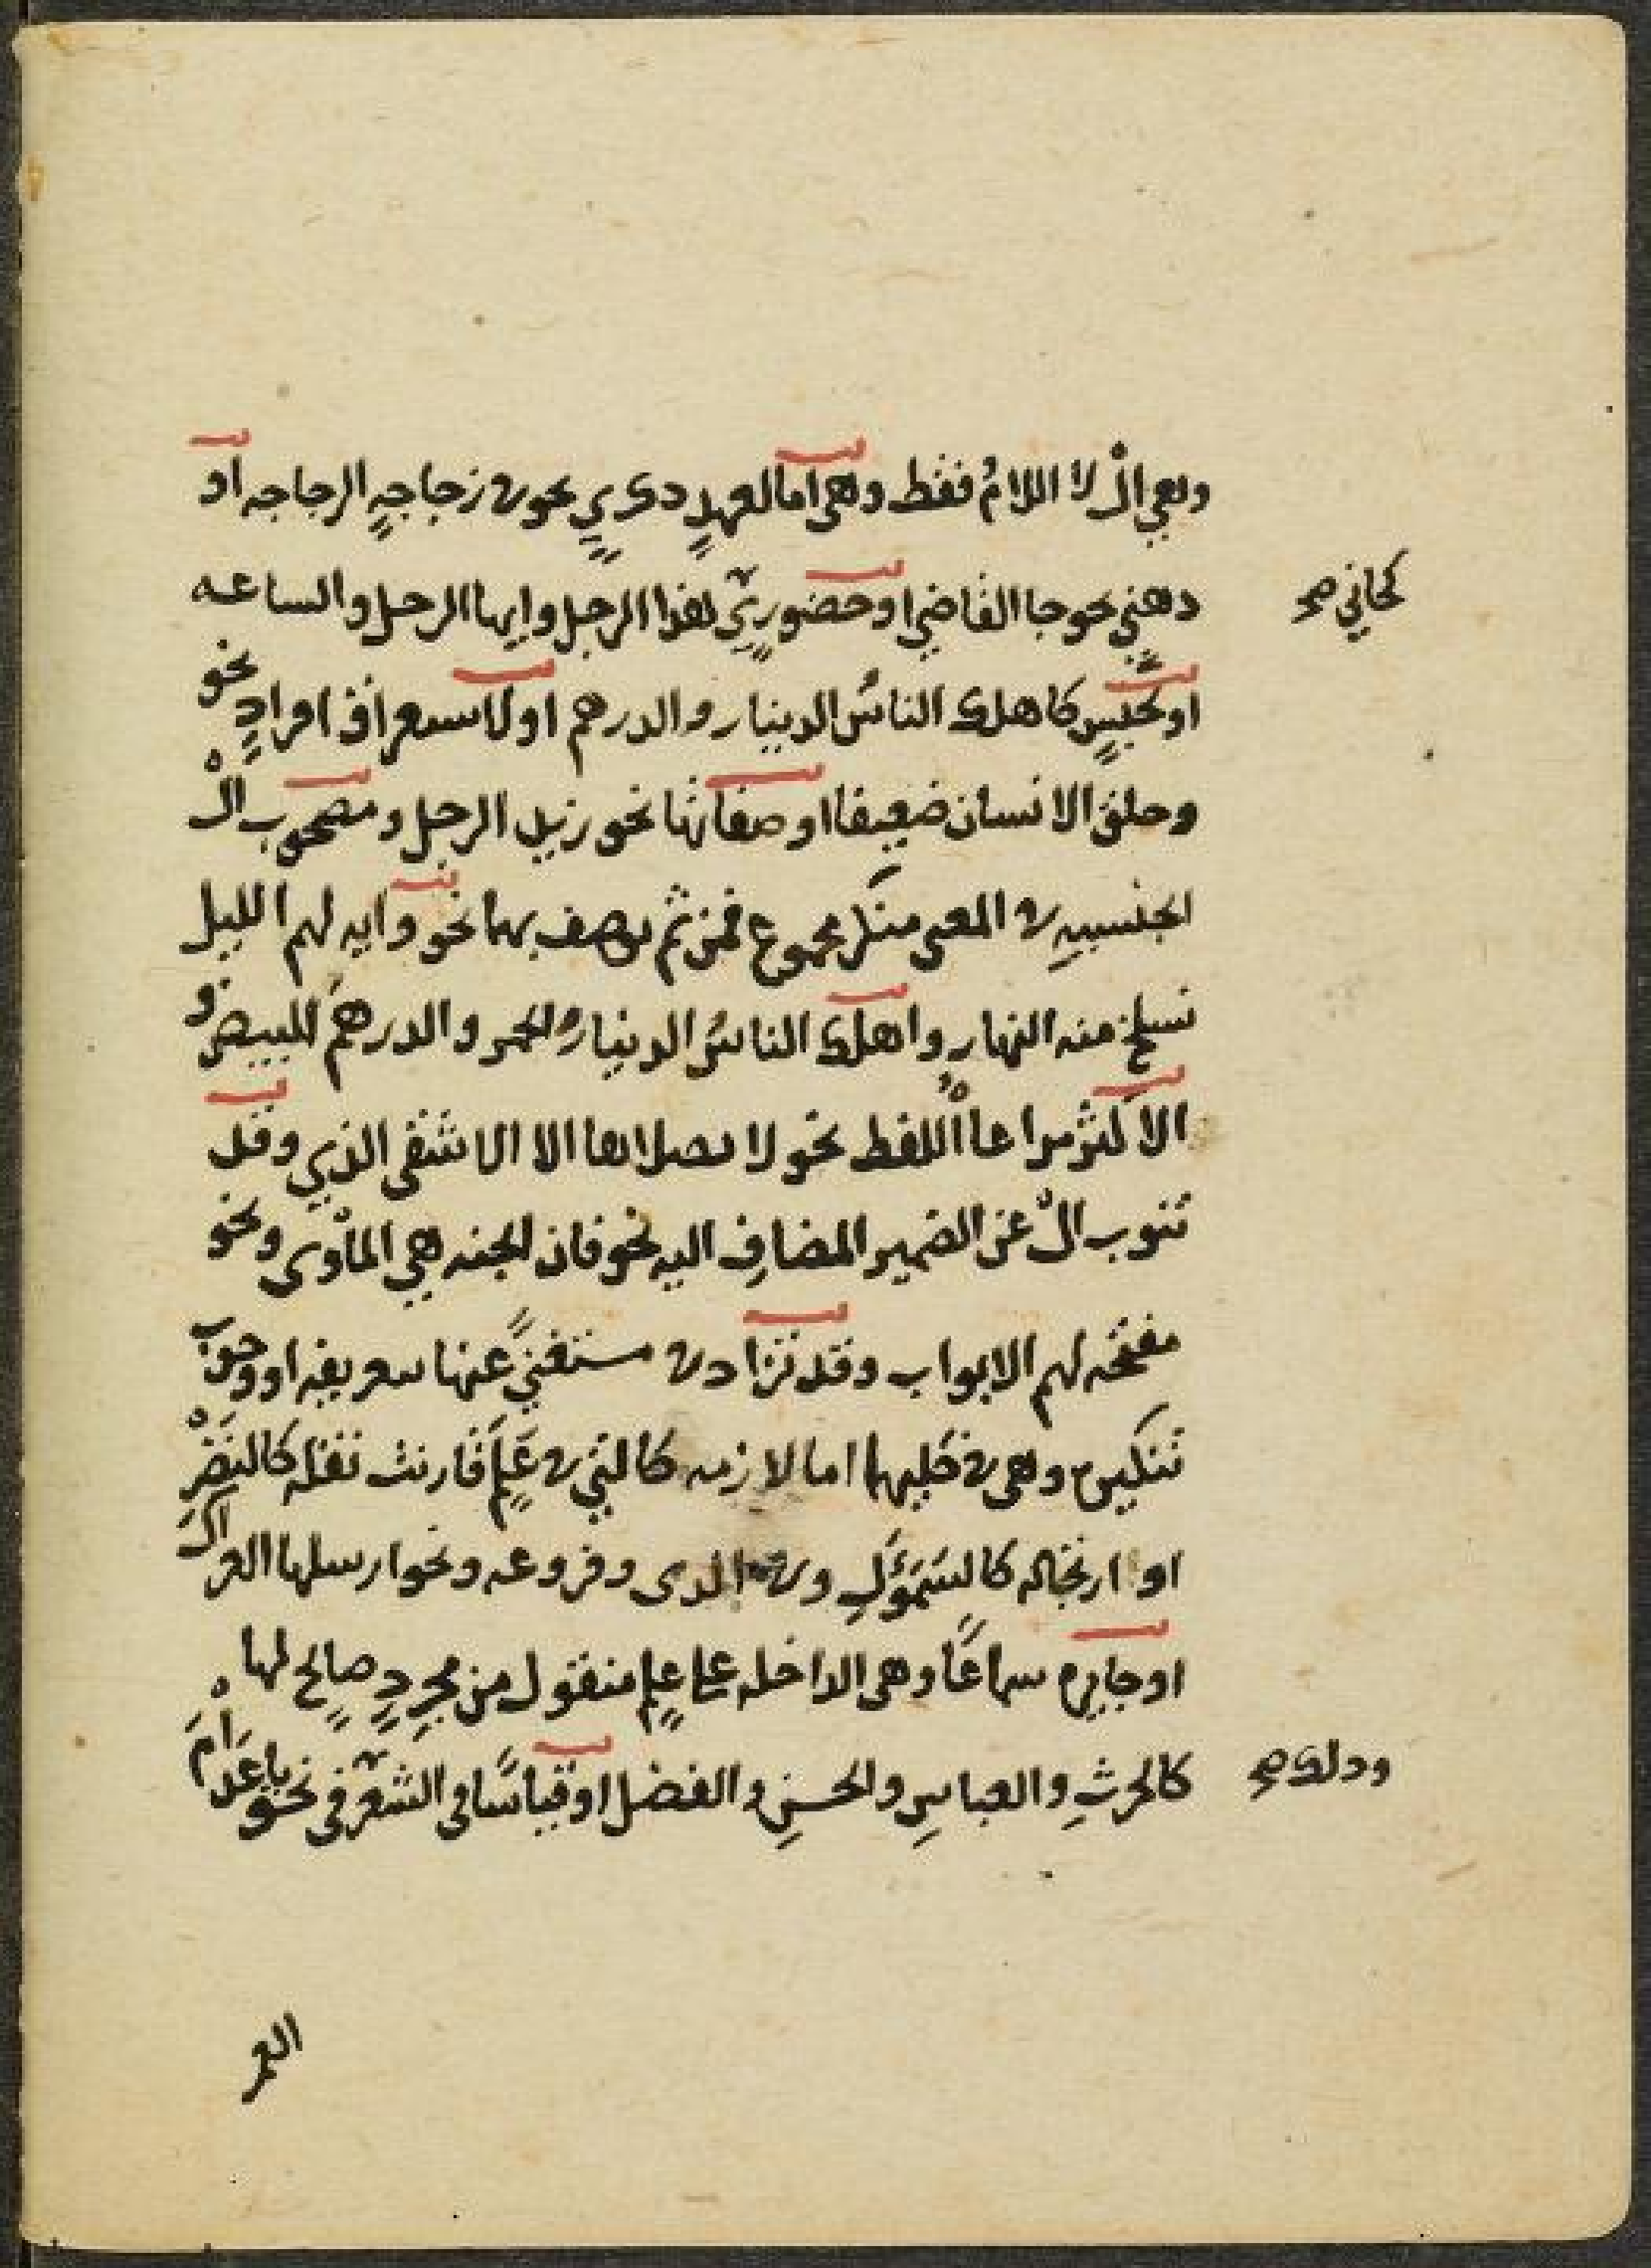 وهي ال لا اللام فقط وهي اما لعهدٍ ذكريٍ نحو في زجاجةٍ الزجاجه او
ذهني نحو جا القاضي او حضوريٍ نحو هذا الرجل وايها الرجل والساعه
او لجنسٍ كاهلك الناسَ الدينار والدرهم او لاستغراق افرادٍ نحو
وخلق الانسان ضعيفا او صفاتها نحو زيد الرجل ومصحوب الْ
الجنسيهِ في المعنى منكر مجموع فمن ثم يوصف بهما نحو وايه لهم الليل
نسلخ منه النهار واهلك الناسَ الدينارُ الحمر والدرهمُ البيض و
الاكثر مراعاةُ اللفظ نحو لا يصلاها الا الاشقى الذي وقد
تنوب الْ عن الضمير المضافِ اليه نحو فان الجنه هي الماْوى ونحو
مفتحه لهم الابواب وقد تزاد في مستغنىً عنها تعريفه او وجوب
تنكيره وهي في كليهما اما لازمه كالتي في عَلَمٍ قارنت نقله كالنَضْرِ
او ارتجاله كالسَمَوْءَلِ وفي الذى وفروعه ونحو ارسلها العراكَ
او جايزه سماعًا وهي الداخله على علمٍ منقول من مجردٍ صالحٍ لها
كالحرثِ والعباسِ والحسنِ والفضل او قياسًا في الشعر في نحو باعَدَ اْمَ
كجاني صح
وذلك صح
العمر